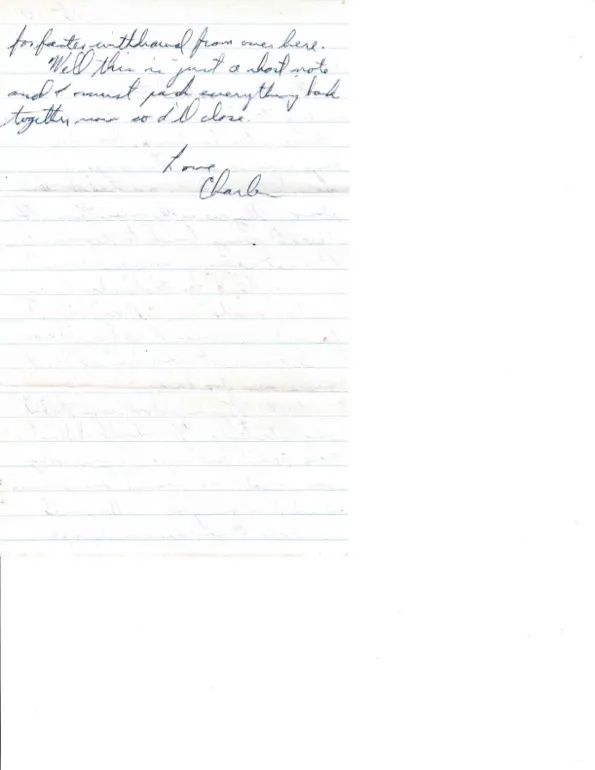 for faster withdrawal from over here.
Well this is just a short note
and I must pack everything back
together now so I'll close.
Love,
Charles